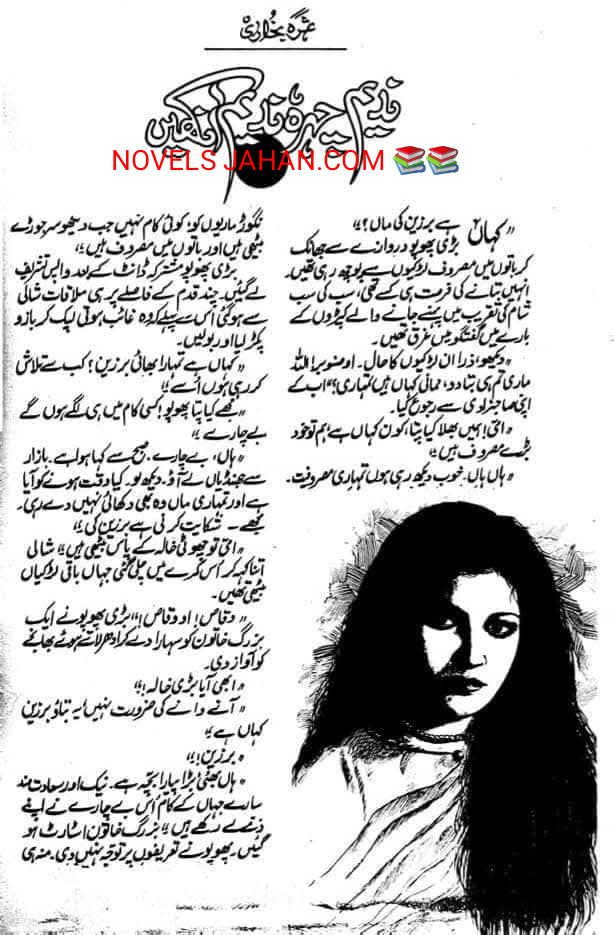 عمرہ بخاری
ندیم چہرہ قدیم آنکھیں
NOVELS JAHAN.COM
"کہاں ہے برزین کی ماں؟"
بڑی پھوپو دروازے سے جھانک
کر باتوں میں مصروف لڑکیوں سے پوچھ رہی تھیں۔
انہیں بتانے کی فرصت ہی کسے تھی، سب کی سب
شام کی تقریب میں پہنے جانے والے کپڑوں کے
بارے میں گفتگو میں غرق تھیں۔
"دیکھو ذرا ان لڑکیوں کا حال۔ او منوبر! اللہ
ماری تم ہی بتا دو، ممانی کہاں ہیں تمہاری؟" اب کے
اپنی صاحبزادی سے رجوع کیا۔
"امی! ہمیں بھلا کیا پتا، کون کہاں ہے، ہم تو خود
بڑے مصروف ہیں۔"
"ہاں ہاں۔ خوب دیکھ رہی ہوں تمہاری مصروفیت۔
نگوڑ ماریوں کو؛ کوئی کام نہیں جب دیکھو سر جوڑے
بیٹھی ہیں اور باتوں میں مصروف ہیں۔"
بڑی پھوپو مشترکہ ڈانٹ کے بعد واپس تشریف
لے گئیں۔ چند قدم کے فاصلے پر ہی ملاقات شالی
سے ہو گئی اس سے پہلے کہ وہ غائب ہوتی لپک کر بازو
پکڑ لیا اور بولیں۔
"کہاں ہے تمہارا بھائی برزین؟ کب سے تلاش
کر رہی ہوں اُسے۔"
"مجھے کیا پتا پھوپو! کسی کام میں ہی لگے ہوں گے
بے چارے۔"
"ہاں، بے چارے۔ صبح سے کہا ہوا ہے۔ بازار
سے جھنڈیاں لے آؤ۔ دیکھ لو۔ کیا وقت ہونے کو آیا
ہے اور تمہاری ماں وہ بھی دکھائی نہیں دے رہی۔
مجھے۔ شکایت کرنی ہے برزین کی۔"
"امی تو چھوٹی خالہ کے پاس بیٹھی ہیں۔" شالی
اتنا کہہ کر اس کمرے میں چلی گئی جہاں باقی لڑکیاں
بیٹھی تھیں۔
"وقاص! او وقاص!" بڑی پھوپو نے ایک
بزرگ خاتون کو سہارا دے کر ادھر لاتے ہوئے بھانجے
کو آواز دی۔
"ابھی آیا بڑی خالہ!"
"آنے وانے کی ضرورت نہیں۔ یہ بتاؤ برزین
کہاں ہے۔"
"برزین!"
"ہاں بھئی بڑا پیارا بچہ ہے۔ نیک اور سعادت مند
سارے جہاں کے کام اس بے چارے نے اپنے
ذمے لے رکھے ہیں۔" بزرگ خاتون اسٹارٹ ہو
گئیں۔ پھوپو نے تعریفوں پر توجہ نہیں دی۔ منہ ہی